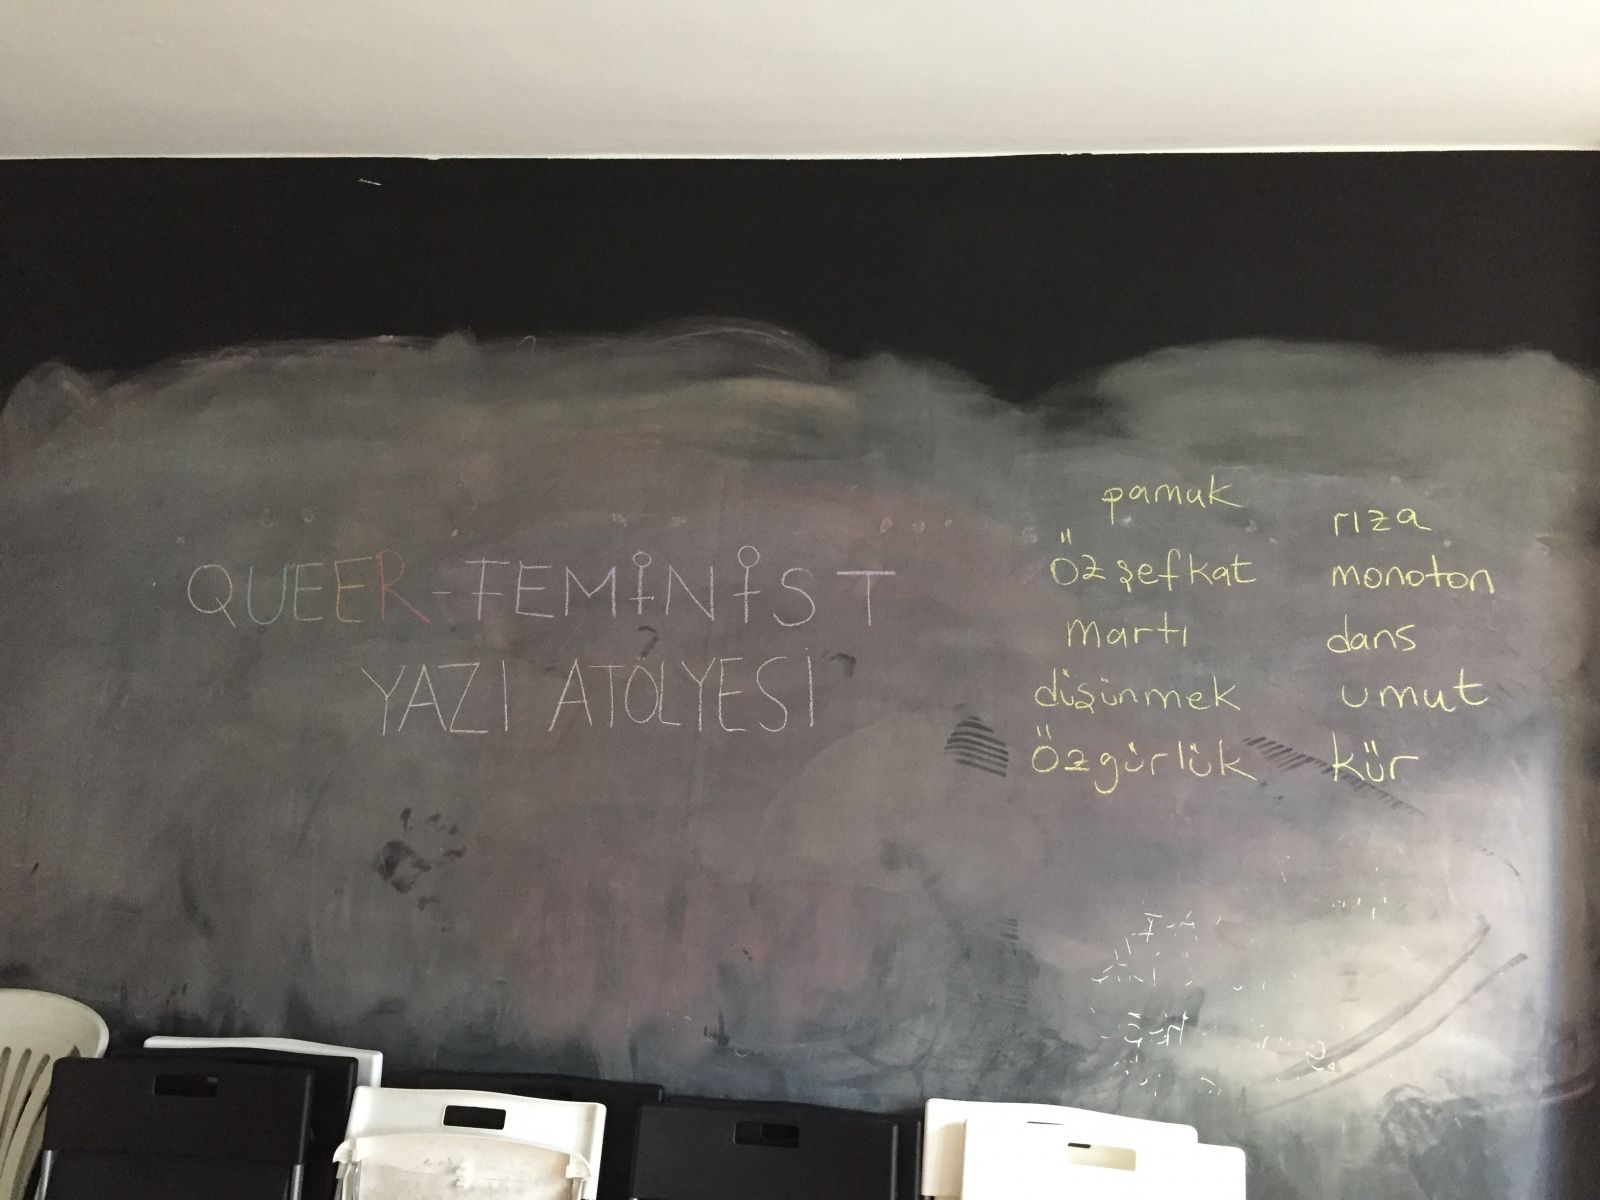 QUEER-FEMİNİST
YAZI ATÖLYESİ
pamuk
özşefkat
martı
düşünmek
Özgürlük
rıza
monoton
dans
umut
kür